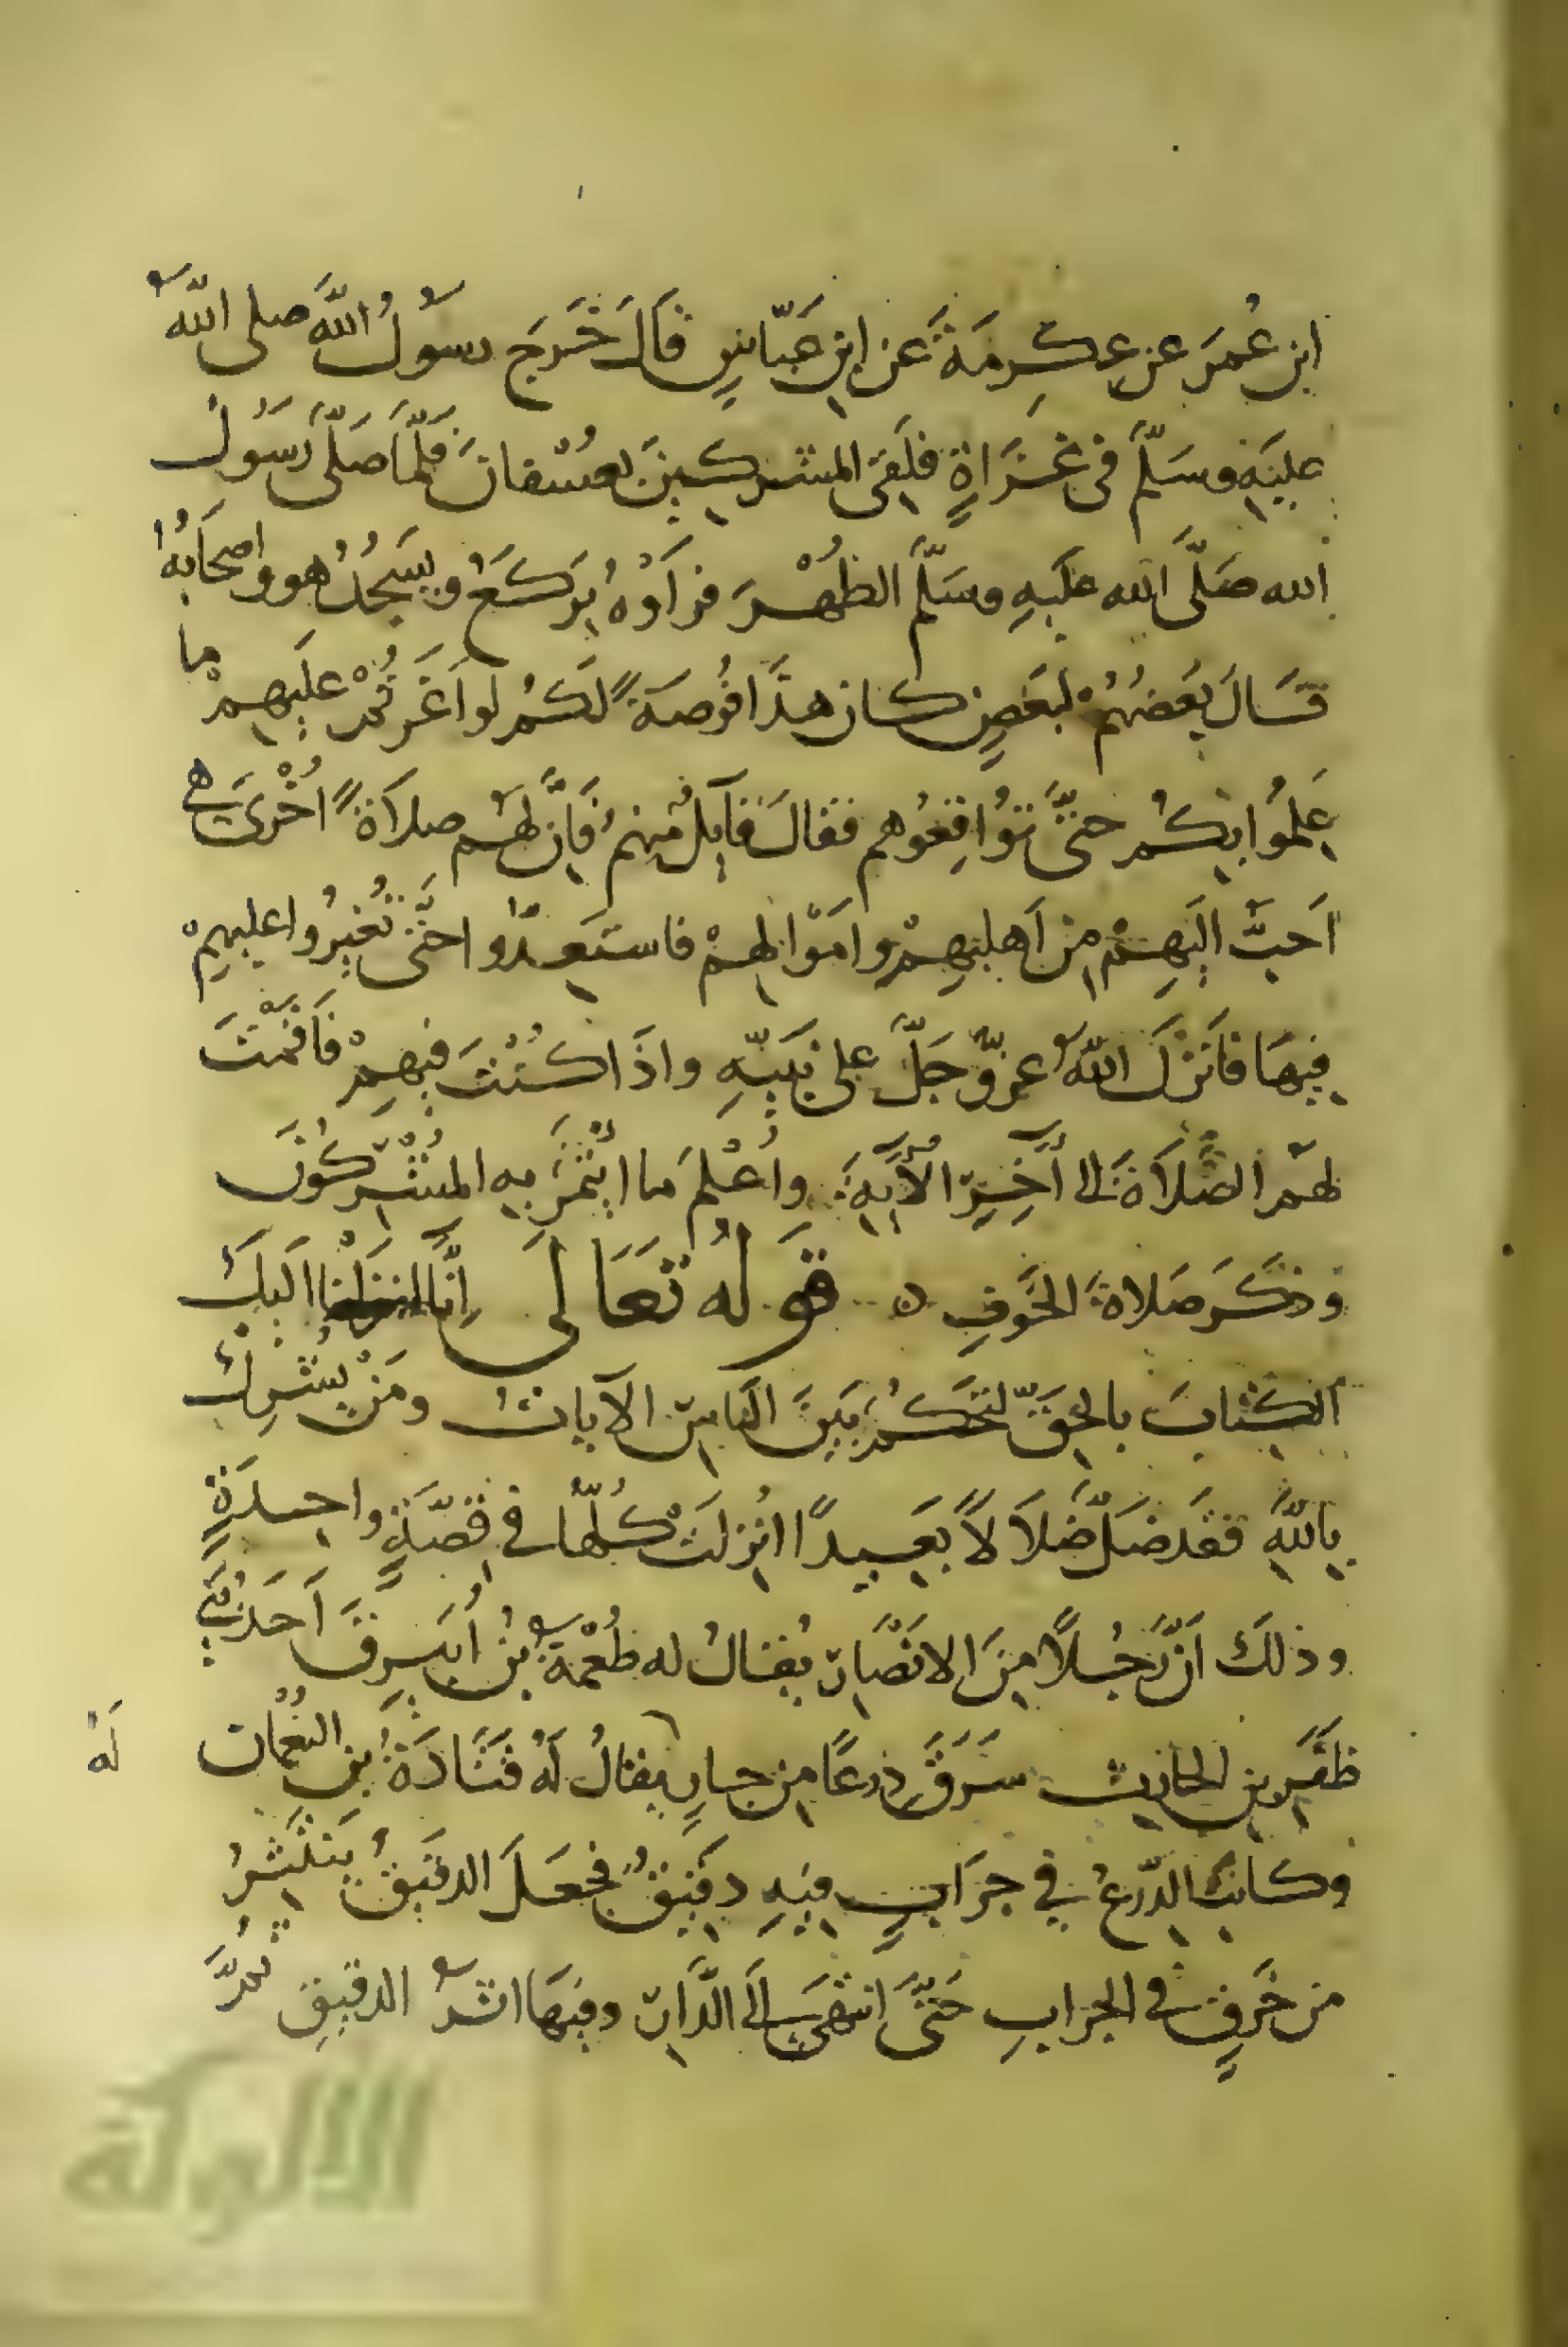 ابن عُمَرَ عن عِكرِمَةَ عَن ابنِ عَبّاسٍ قَالَ خَرَجَ رسوُلُ اللَّهِ صلى اللَّه
عليَهِ وسَلّمَ فى غَزَاةٍ فلَقىَ المشركينَ بعُسْفانَ فَلَمَّا صَلّى رَسَوُلُ
الله صَلَّى الله عَليَهِ وسَلّمَ الظُهْرَ فرَأوْهُ يَركَعُ وَيسَجُدُ هو واصحَابُه
قَالَ بَعَضُهُمْ لبَعَضٍ كان هذَا فُرصَةً لَكمُ لو اَغَرتُمْ عليَهِمْ ما
عَلِمُوا بِكُم حتىَّ تُوُاقِعُوهم فقالَ قَايِلٌ مِنهمُ فَاِنَّ لهَمُ صلاَةً اُخْرىَ هى
اَحَبَّ اليَهِمْ مِن اَهليهِمْ وامَوْالهِمْ فاستَعِدّوُا حتَّى تُغِيرُوا عليهِمْ
فِيهَا فاَنَزلَ اللَّهُ عزّ وَجَلَّ على نَبيّهِ واذَا كُنْتَ فيهِمْ فَاَقَمْتَ
لهمُ الصَّلاَةَ الى أَخِرِ الأَيَهِ وَاُعْلمَ ما ايْتَمَرَ بِهِ المُشْرِكُوُنَ
وذكَرَ صَلاةَ الخَوفِ ه قوَلهُ تعَاَلىَ اِنَّا انزَلْنا اليكَ
الكِتابَ بالحَقّ لتَحكُمَ بَينَ النَاسِ الآيات ومَنْ يُشْرِكْ
بِاللَّهِ فقَد ضَلَّ ضَلاَلاً بَعِيدًا اُنِزلَتْ كُلّهُا فى قِصَّةٍ واحِدَةٍ
وذلَكَ اَنَّ رَجُلاً مِنَ الانَصَارِ يُقالُ له طُعْمَةُ بنُ اُبيَرِقَ اَحَدُ بَنِي
ظَفَرِ بنِ الحارِثِ سَرَقَ دِرعًا مِن جارٍ يقالُ لَهُ قَتَادَةُ بنِ النُعْمَان
لَهُ
وكانتَ الدّرعُ في جَرَابٍ فيَهِ دقَيِقٌ فجَعَلَ الدقَيقُ يَنَتَثِرُ
من خَرقٍ فى الجرابِ حَتّىَ انتَهىَ الَى الدَّارِ وفيَهَا اثَرُ الدقيقِ ثُمَّ
الألوكة